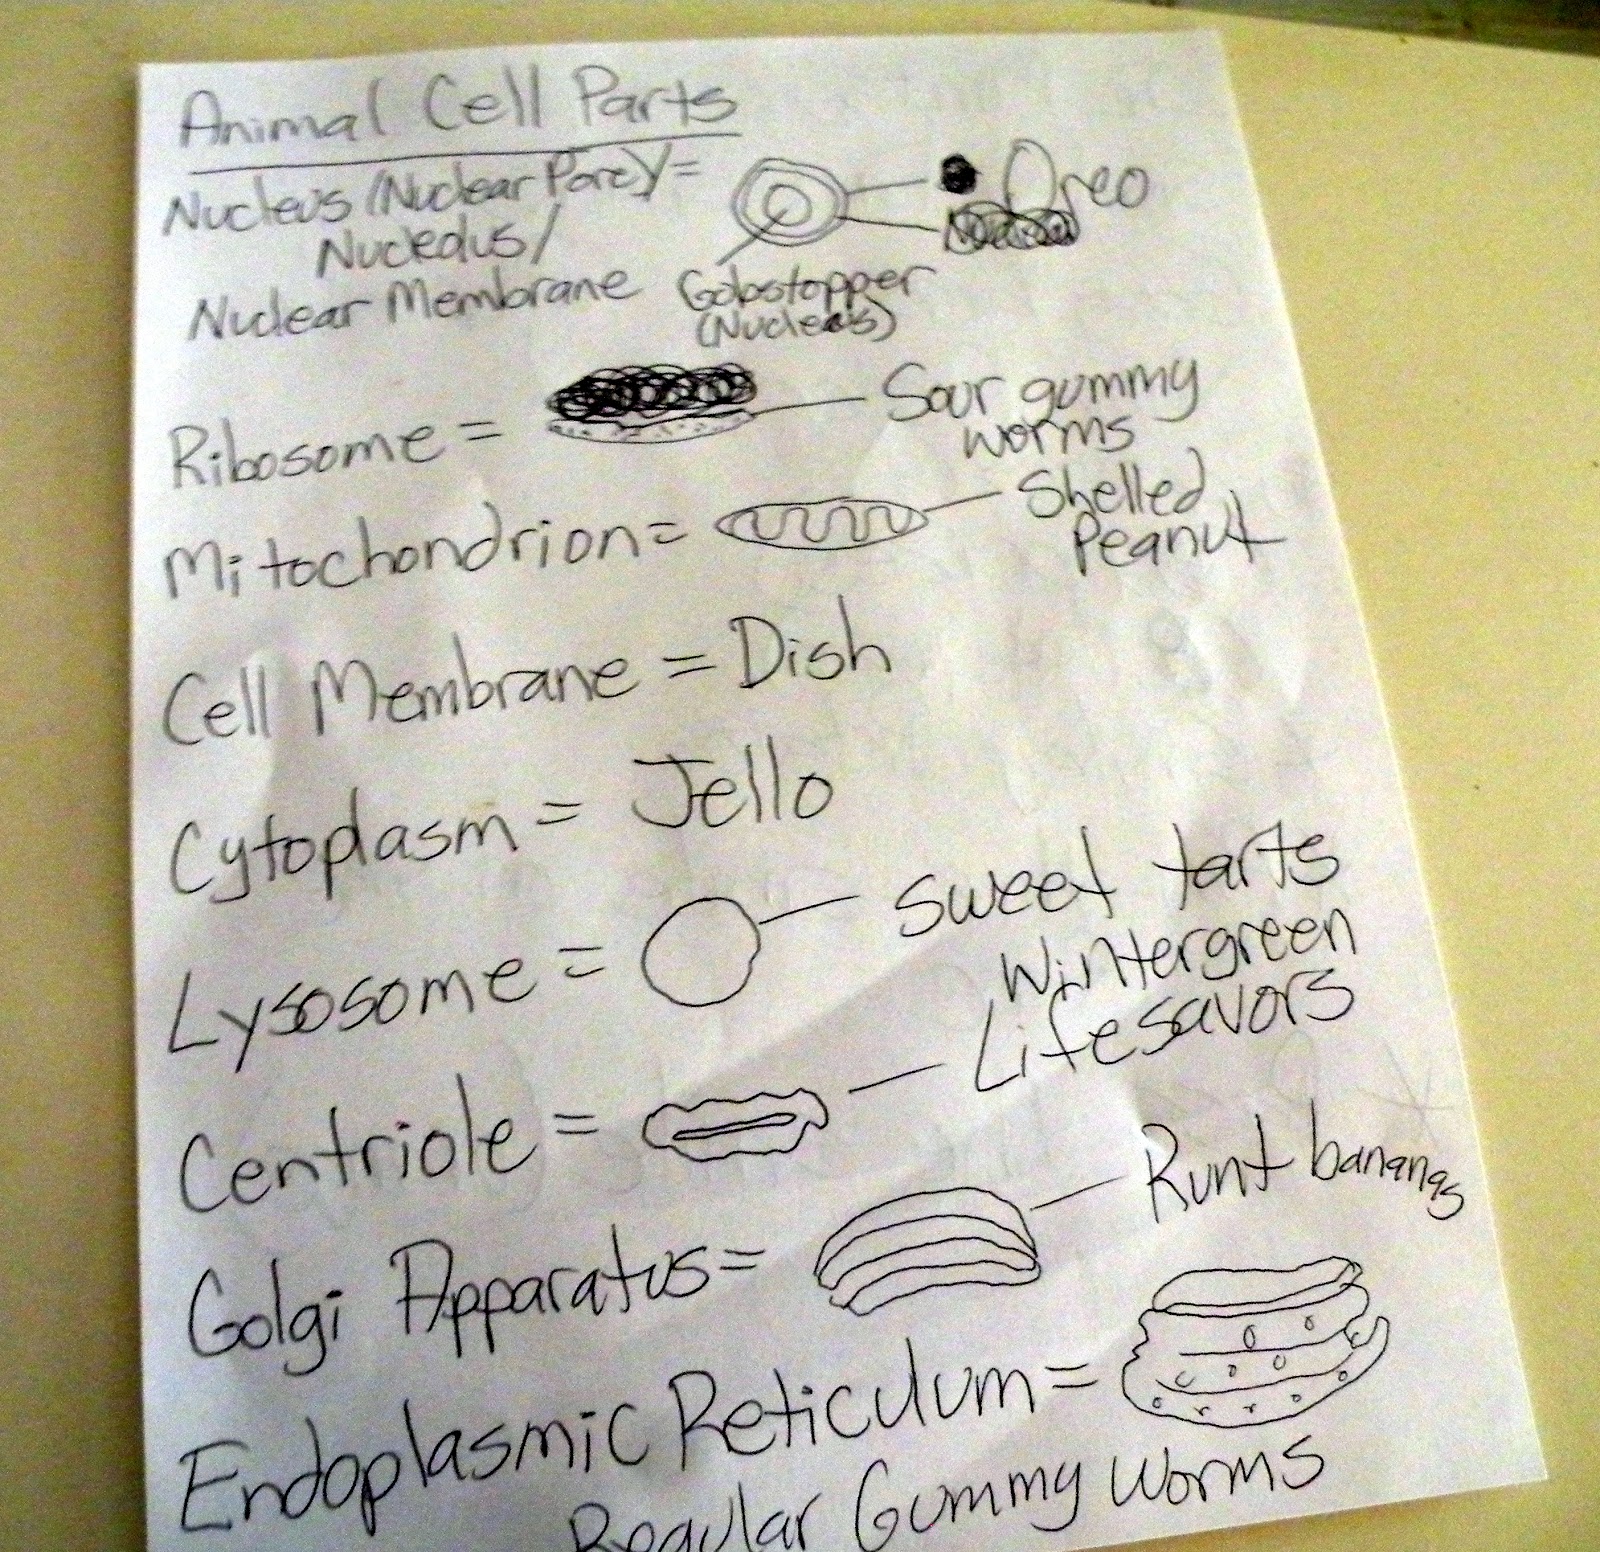 Animal Cell Parts
Nucleus (Nuclear Pore)/ = Oreo
Nucleolus/
Nuclear Membrane Gobstopper
(Nucleus)
Ribosome = Sour gummy
worms
Mitochondrion = Shelled
Peanut
Cell Membrane = Dish
Cytoplasm = Jello
Lysosome = sweet tarts
Wintergreen
Centriole = Lifesavors
Golgi Apparatus = Runt bananas
Endoplasmic Reticulum =
Regular Gummy Worms